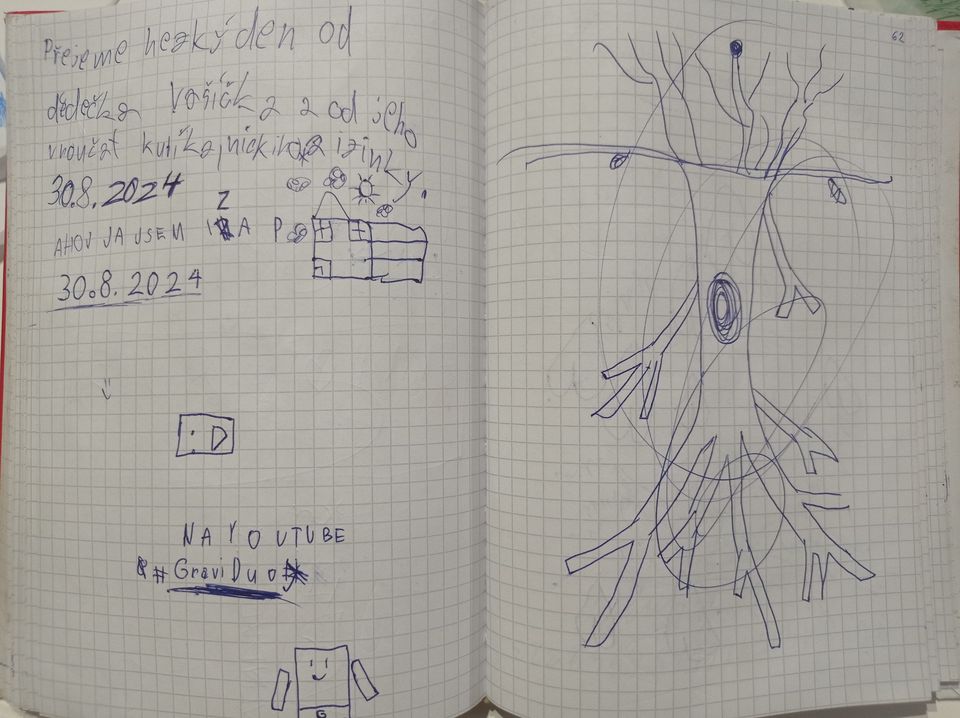 Přejeme hezký den od
dědečka Vašíčka a od jeho
vnoučat
30.8.2024
Z
AHOJ JA JSEM
30.8.2024
:D
NA YOUTUBE
#GraviDuo
G
62